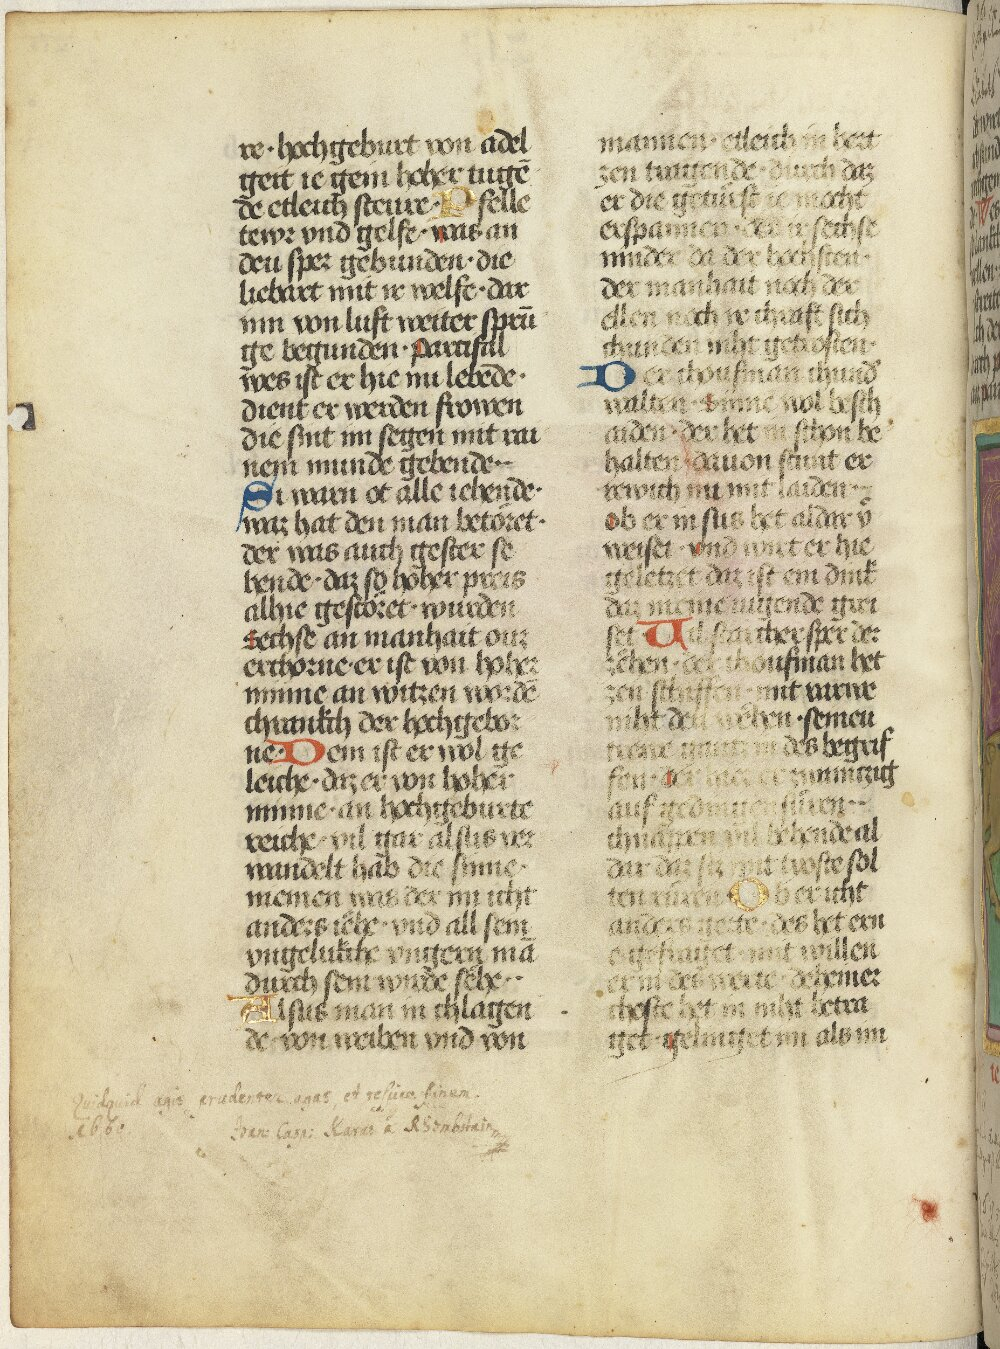 re · hochgeburt von adel
gert ie gein hoher tugē
de etleich steure · Pfelle
tewr vnd gelfe · was an
deu sper gebunden · die
liebart mit ir welfe · dar
inn von luft weiter sprū
ge begunden · partifal
wes ist er hie nu lebēde ·
dient er werden frowen
die sint im segen mit rai
nem munde gebende ··
Si warn ot alle iehende ·
waz hat den man betöret ·
der was auch gester se
hende · daz so hoher preis
alhie gestöret · wurden
sechse an manhait ouz
erchorne · er ist von hoher
minne an witzen wordē
chranklich der hochgebor
ne · Dem ist er wol ge
leiche · daz er von hoher
minne · an hochgeburte
reiche · vil gar alsus ver
wandelt hab die sinne ·
meinen was der nu icht
anders iehe · vnd all sein
vngelukche vngern mā
durch sein wirde sehe ··
Alsus man in chlagen
de · von weiben vnd von
mannen · etleich in hert
zen tragende · durch daz
er die getürst ie mocht
erspannen · der ir sechse
ninder da der hochsten ·
der manhait noch der
ellen noch ir chraft sich
chunden niht getrosten ·
Der choufman chund
walten · sinne wol besch
aiden · der het in schon be
halten · dauon stunt er
rewich nu mit laiden ··
ob er in sus het aldar v̄
weiset · vnd wirt er hie
geletzet daz ist ein dink
daz meine iugende grei
set Vil starcher sper der
zehen · der choufman het
zen schiffen · mit varwe
niht den wehen · seinen
trewe gantz in des begrif
fen · der hiez er zwaintzig
auf gedingen füren ··
chnappen vil behende al
dar daz si mit troste sol
ten rüren Ob er icht
anders gerte · des het ern
e gefraget · mit willen
er in des werte · deheiner
choste het in niht betra
get · gelinget im als im
Quidquid agis, prudenter agas, et respice finem.
Fran: Casp: Karas â Rhombstain